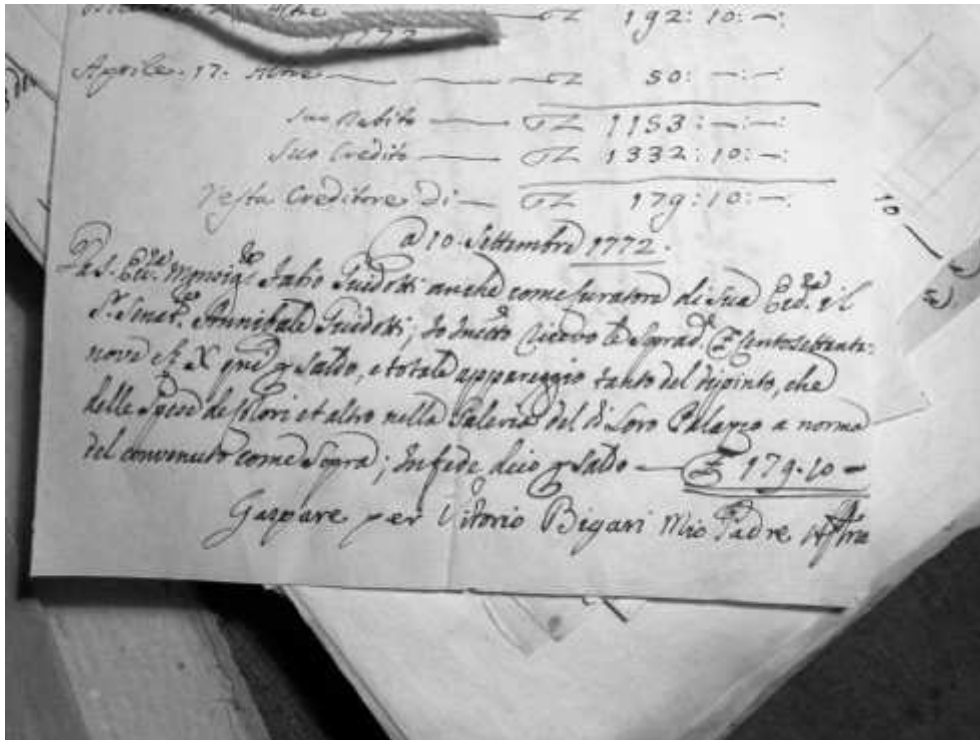 192: 10: —:
1772
Aprile. 17. Altre — — — 50: —: —:
suo Debito — 1153: —: —:
Suo Credito — 1332: 10: —:
Resta Creditore di — 179: 10: —:
a 10. Settembre 1772.
Da S. Ecc.za Monsig.re Fabio Guidotti anche come Curatore di Sua Ecc.za il
S.r Senat.e Annibale Guidotti; Io ricevo le Soprad.e centosettanta:
nove saldo, e totale appareggio tanto del dipinto, che
delle Spese de Colori et altro nella Galeria del di Loro Palazzo a norma
del convenuto come Sopra; In fede dico p saldo — 179. 10 —
Gaspare per Vitorio Bigari Mio Padre
10